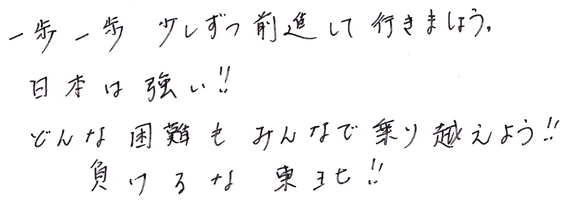 一歩一歩 少しずつ前進して行きましょう。
日本は強い!!
どんな困難もみんなで乗り越えよう!!
負けるな東北!!